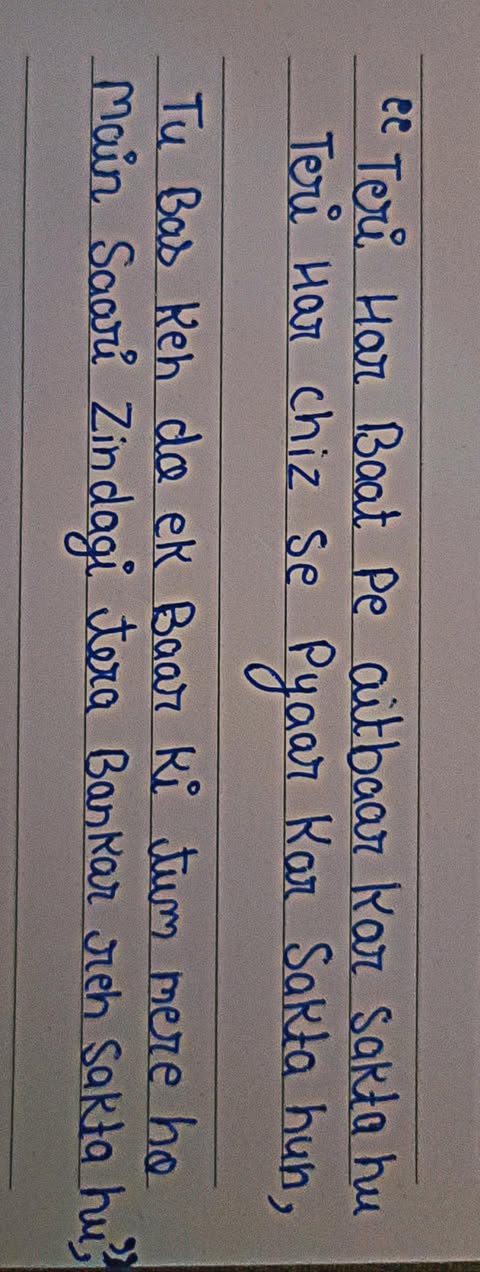 “Teri Har Baat Pe aitbaar Kar Sakta hu
Teri Har chiz Se Pyaar Kar Sakta hun,
Tu Bas Keh do ek Baar Ki tum mere ho
Main Saari Zindagi tera Bankar reh Sakta hu”,